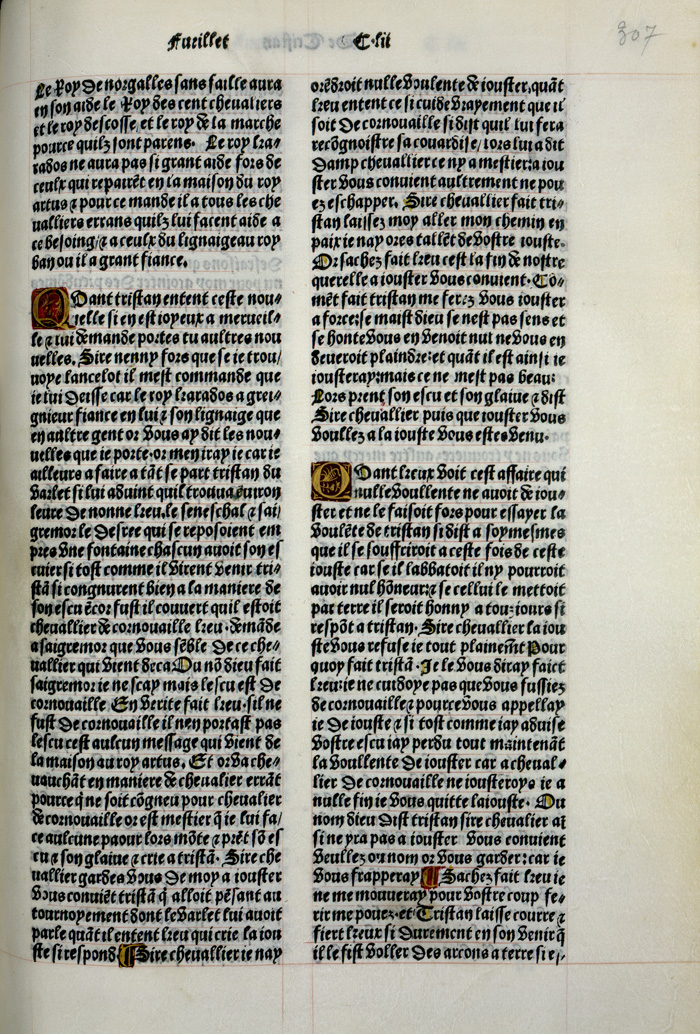 Fueillet C·lii
307
Le Roy de norgalles sans faille aura
en son aide le Roy des cent chevaliers
et le roy descosse, et le roy de la marche
pource quilz sont parens. Le roy kra/
rados ne aura pas si grant aide fors de
ceulx qui repairēt en la maison du roy
artus ⁊ pour ce mande il a tous les che
ualliers errans quilz lui facent aide a
ce besoing/⁊ a ceulx du lignaigeau roy
ban ou il a grant fiance.
Quant tristan entent ceste nou/
uelle si en est ioyeux a merueil/
le ⁊ lui demande portes tu aultres nou
uelles. Sire nenny fors que se ie trou/
uoye lancelot il mest commande que
ie lui deisse car le roy krarados a grei/
gnieur fiance en lui ⁊ son lignaige que
en aultre gent or vous ay dit les nou/
uelles que ie porte·or men iray ie car ie
ailleurs a faire a tāt se part tristan du
varlet si lui aduint quil trouua enuiron
leure de nonne keu.le seneschal ⁊ sai/
gremor le desree qui se reposoient em
pres vne fontaine chascun auoit son es
cuier si tost comme il virent venir tri/
stā si congnurent bien a la maniere de
son escu ēcor fust il couvert quil estoit
chevallier de cornouaille keu·demāde
a saigremor que vous sēble de ce che/
uallier qui vient deca Ou nō dieu fait
saigremor ie ne scay mais lescu est de
cornouaille En verite fait keu·sil ne
fust de cornouaille il nen portast pas
lescu cest aulcun message qui vient de
la maison au roy artus. Et or va che/
uauchāt en maniere de chevalier errāt
pource q̄ ne soit cōgneu pour chevalier
de cornouaille or est mestier q̄ ie lui fa/
ce aulcune paour lors mōte ⁊ prēt sō es
cu ⁊ son glaiue ⁊ crie a tristā· Sire che
uallier gardes vous de moy a iouster
vous conuiēt tristā q̄ alloit pēsant au
tournoyement dont le varlet lui auoit
parle quāt il entent keu qui crie la iou
ste si respond ¶ Sire chevallier ie nay
oredroit nulle voulente de iouster,quāt
keu entent ce si cuide vrayement que il
soit de cornouaille si dist quil lui fera
recōgnoistre sa couardise/lors lui a dit
Damp chevallier ce ny a mestier:a iou
ster vous conuient aultrement ne pou
ez eschapper. Sire chevallier fait tri/
stan laissez moy aller mon chemin en
paix ie nay ores tallēt de vostre iouste·
Or sachez fait keu cest la fin de nostre
querelle a iouster vous conuient·Cō/
mēt fait tristan me ferez vous iouster
a force:se maist dieu se nest pas sens et
se honte vous en venoit nul ne vous en
deueroit plaindre:et quāt il est ainsi ie
iousteray:mais ce ne mest pas beau:
Lors prent son escu et son glaiue ⁊ dist
Sire chevallier puis que iouster vous
voullez a la iouste vous estes venu·
Quant keux voit cest affaire qui
nulle voullente ne auoit de iou/
ster et ne le faisoit fors pour essayer la
voulēte de tristan si dist a soymesmes
que il se souffriroit a ceste fois de ceste
iouste car se il labbatoit il ny pourroit
auoir nul hōneur:⁊ se cellui le mettoit
par terre il seroit honny a tou:iours si
respōt a tristan·Sire chevallier la iou
ste vous refuse ie tout plainemēt Pour
quoy fait tristā·Je le vous diray faict
keu:ie ne cuidoye pas que vous fussiez
de cornouaille ⁊ pource vous appellay
ie de iouste ⁊ si tost comme iay aduise
vostre escu iay perdu tout maintenāt
la voullente de iouster car a cheual/
lier de cornouaille ne iousteroye ie a
nulle fin ie vous quitte la iouste· Ou
nom dieu dist tristan sire chevalier ai
si ne yra pas a iouster vous conuient
veullez ou nom or vous garder:car ie
vous frapperay ¶ Sachez fait keu ie
ne me mouueray pour vostre coup fe/
rir me pouez·et Tristan laisse courre ⁊
fiert keux si durement en son venir q̄
il le fist voller des arcons a terre si e/